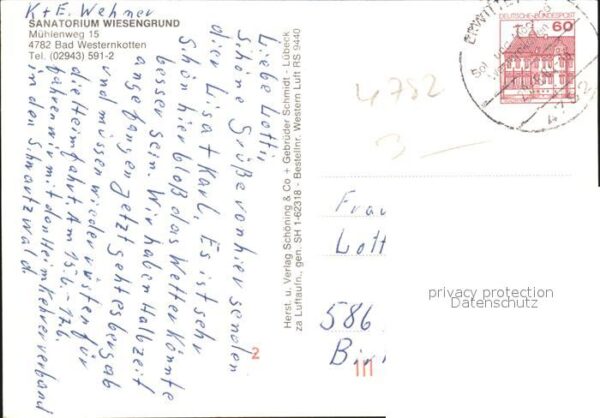 K+E. Wehner
SANATORIUM WIESENGRUND
Mühlenweg 15
4782 Bad Westernkotten
Tel. (02943) 591-2
Liebe Lotti,
Schöne Grüße von hier senden
dier Lisa + Karl. Es ist sehr
Schön hier bloß das Wetter könnte
besser sein. Wir haben Halbzeit
angefangen jetzt geht es bergab
und müssen wieder rüsten für
die Heimfahrt. Am 15.6.-17.6.
fahren wir mit den Heimkehrerverband
in den Schwartzwald.
Herst. u. Verlag Schöning & Co + Gebrüder Schmidt - Lübeck
za Luftaufn., gen. SH 1-62318 - Bestellnr. Western Luft RS 9440
2
DEUTSCHE BUNDESPOST
60
ERWITTE
4782
3
Frau
Lott
586
privacy protection
Datenschutz